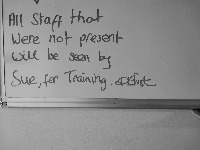 All Staff that
Were not present
will be seen by
Sue, for Training.